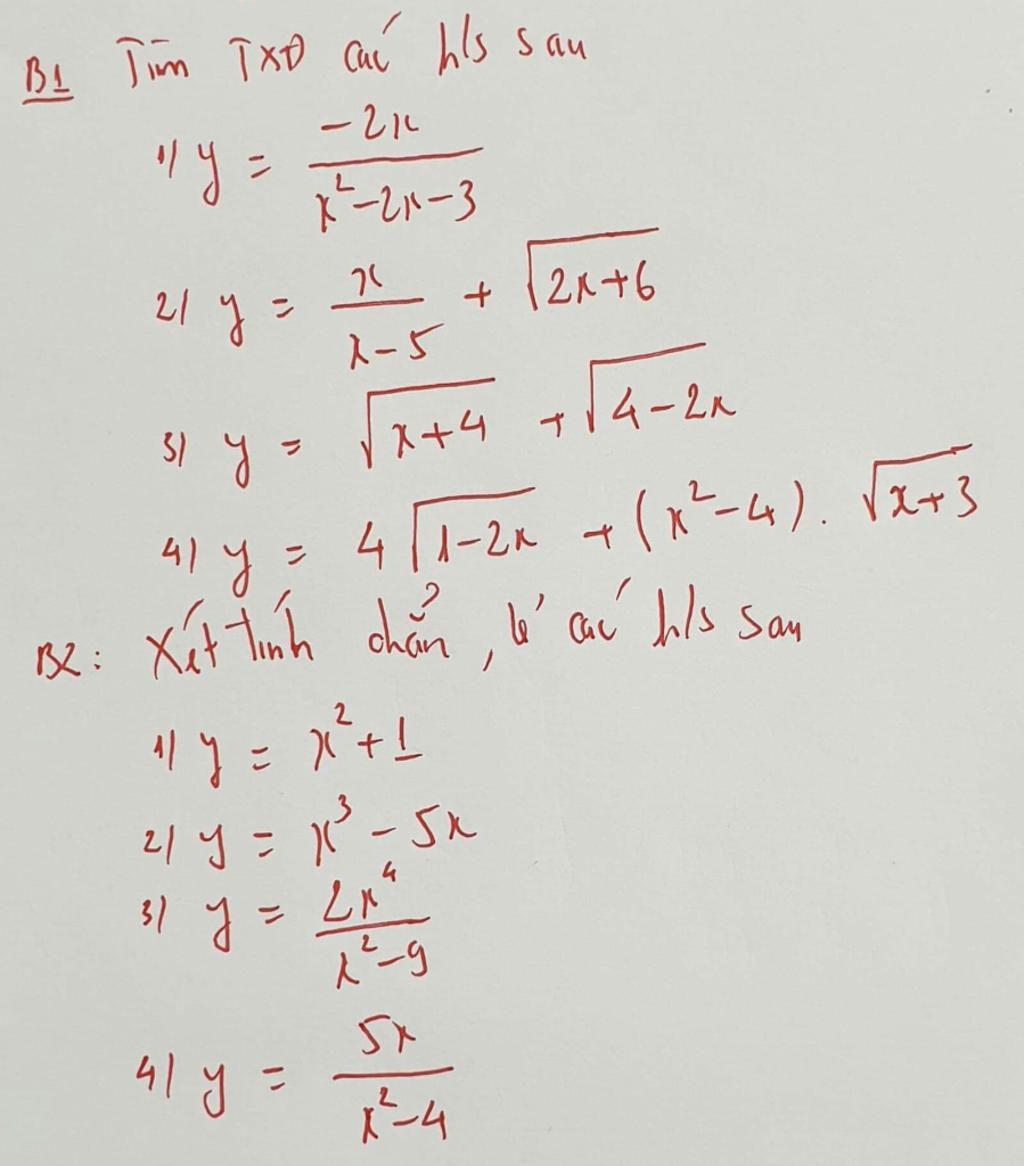 B1 Tìm TXĐ các h/s sau
1/ y = \frac{-2x}{x^2-2x-3}
2/ y = \frac{x}{x-5} + \sqrt{2x+6}
3/ y = \sqrt{x+4} + \sqrt{4-2x}
4/ y = 4\sqrt{1-2x} + (x^2-4). \sqrt{x+3}
B2: Xét tính chẵn, lẻ các h/s sau
1/ y = x^2+1
2/ y = x^3 - 5x
3/ y = \frac{2x^4}{x^2-9}
4/ y = \frac{5x}{x^2-4}